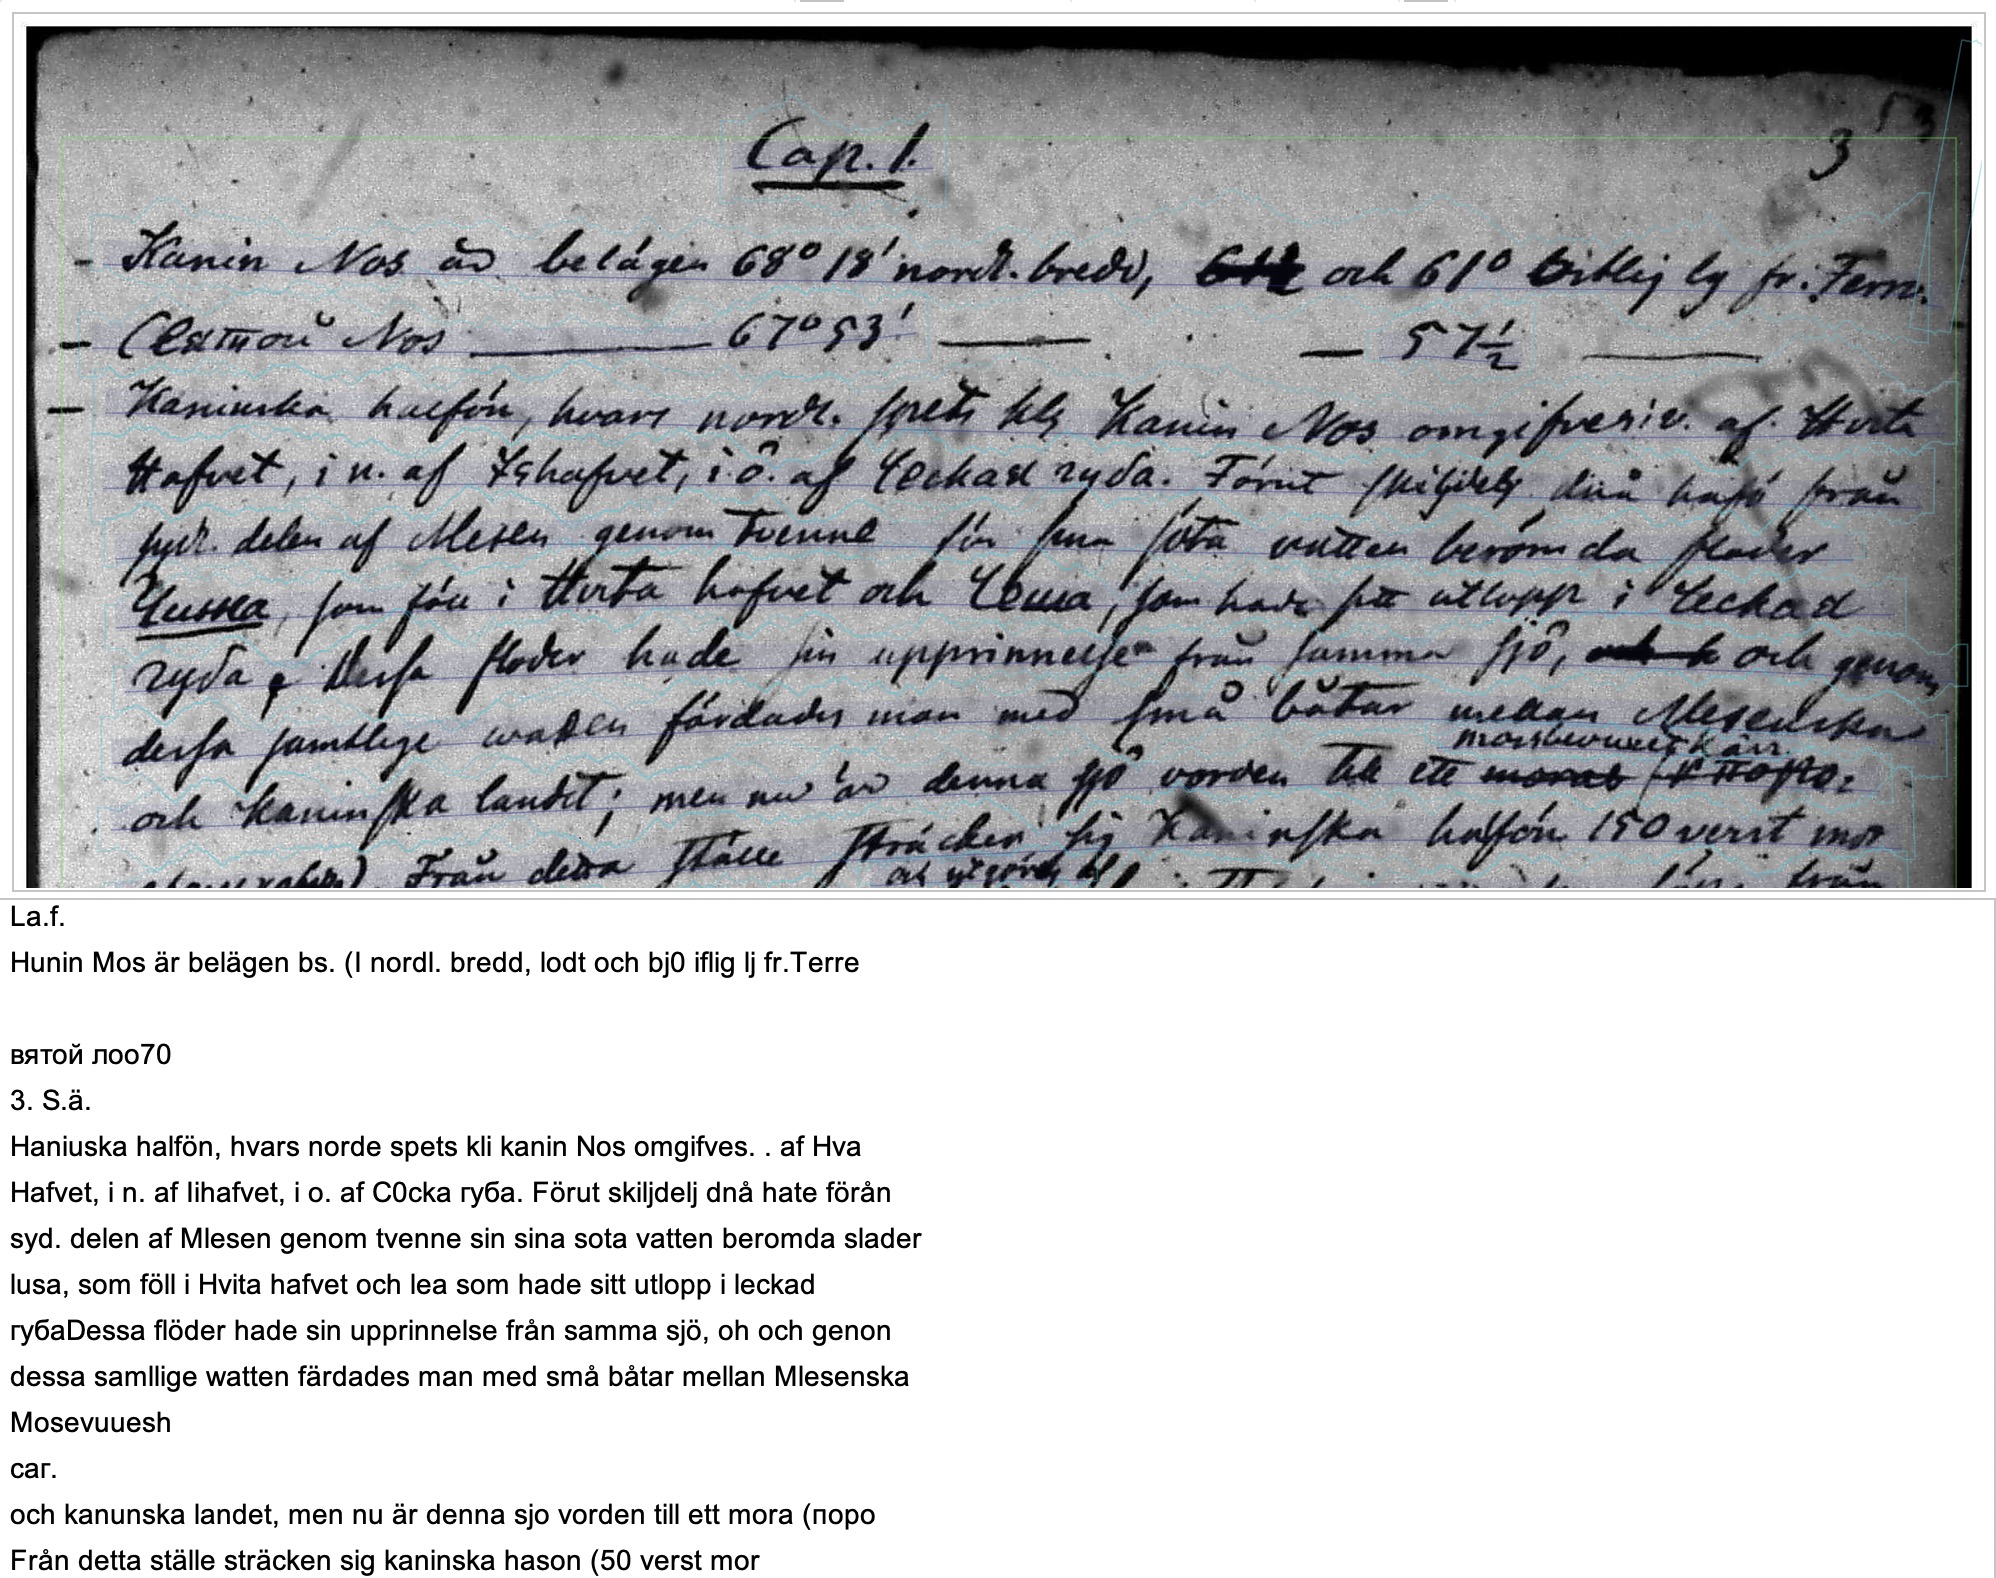 Cap. 1.
3
53
- Kanin Nos är belägen 68° 18' nordl. bredd, och 61° östlig lg fr. Ferro.
- Святой Nos ——— 67° 53' —— — 57½ ——
- Kaninska halfön, hvars nordl. spets kls Kanin Nos omgifves i v. af Hvita
Hafvet, i n. af Ishafvet, i ö. af Ческая губа. Förut skiljdes dnå halfö från
syd. delen af Mesen genom tvenne för sina söta vatten berömda floder
Чижа, som föll i Hvita hafvet och Чеша, som hade sitt utlopp i Ческая
губа. Dessa floder hade sin upprinnelse från samma sjö, och genom
dessa samtlige watten färdades man med små båtar mellan Mesenska
mossbevuxet kärr
och Kaninska landet; men nu är denna sjö vorden till ett moras
Från detta ställe sträcker sig Kaninska halfön 150 verst mot
och utgöres af
från
La.f.
Hunin Mos är belägen bs. (I nordl. bredd, lodt och bj0 iflig lj fr.Terre
вятой лоо70
3. S.ä.
Haniuska halfön, hvars norde spets kli kanin Nos omgifves. . af Hva
Hafvet, i n. af Iihafvet, i o. af C0cka губа. Förut skiljdelj dnå hate förån
syd. delen af Mlesen genom tvenne sin sina sota vatten beromda slader
lusa, som föll i Hvita hafvet och lea som hade sitt utlopp i leckad
губаDessa flöder hade sin upprinnelse från samma sjö, oh och genon
dessa samllige watten färdades man med små båtar mellan Mlesenska
Mosevuuesh
саг.
och kanunska landet, men nu är denna sjo vorden till ett mora (поро
Från detta ställe sträcken sig kaninska hason (50 verst mor